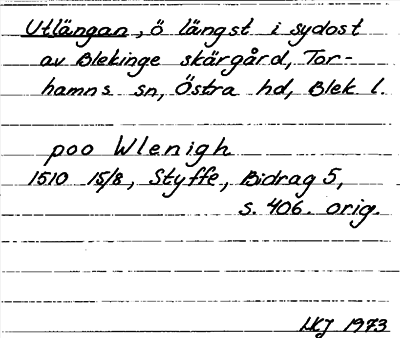 Utlängan, ö längst i sydost
av Blekinge skärgård, Tor-
hamns sn, Östra hd, Blek l.
poo Wlenigh
1510 15/8, Styffe, Bidrag 5,
s. 406. orig.
1973